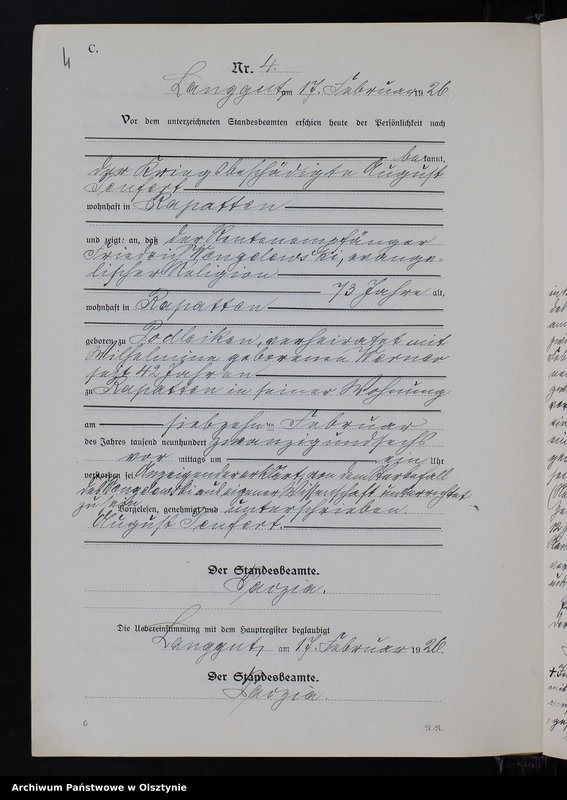 4
C.
Nr. 4.
Langgut, am 17. Februar 1926.
Vor dem unterzeichneten Standesbeamten erschien heute der Persönlichkeit nach
bekannt,
der Kriegsbeschädigte August
Senfert
wohnhaft in Rapatten
und zeigte an, daß der Rentenempfänger
Friedrich Wengelowski, evange-
lischer Religion
73 Jahre alt,
wohnhaft in Rapatten
geboren zu Podleiken, verheiratet mit
Wilhelmine geborenen Werner
seit 42 Jahren
zu Rapatten in seiner Wohnung
am siebzehn ten Februar
des Jahres tausend neunhundert zwanzigundsechs
vor mittags um ein Uhr
verstorben sei. Anzeigender erklärt, von dem Sterbefall
des Wengelowski aus eigener Wissenschaft unterrichtet
zu sein.
Vorgelesen, genehmigt und unterschrieben
August Senfert.
Der Standesbeamte.
Die Uebereinstimmung mit dem Hauptregister beglaubigt
Langgut, am 17. Februar 1926.
Der Standesbeamte.
6
Archiwum Państwowe w Olsztynie